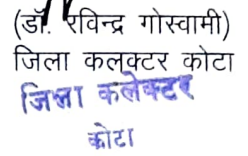 (डॉ. रविन्द्र गोस्वामी)
जिला कलक्टर कोटा
जिला कलेक्टर
कोटा